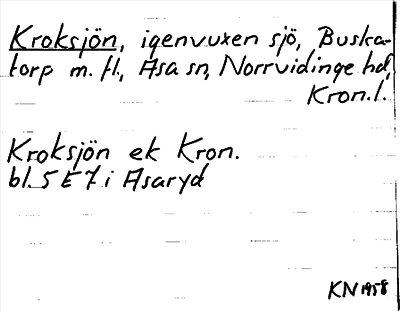 Kroksjön, igenvuxen sjö, Buska-
torp m. fl., Asa sn, Norrvidinge hd,
Kron. l.
Kroksjön ek Kron.
bl. 5 E 7 i Asaryd
KN 1958